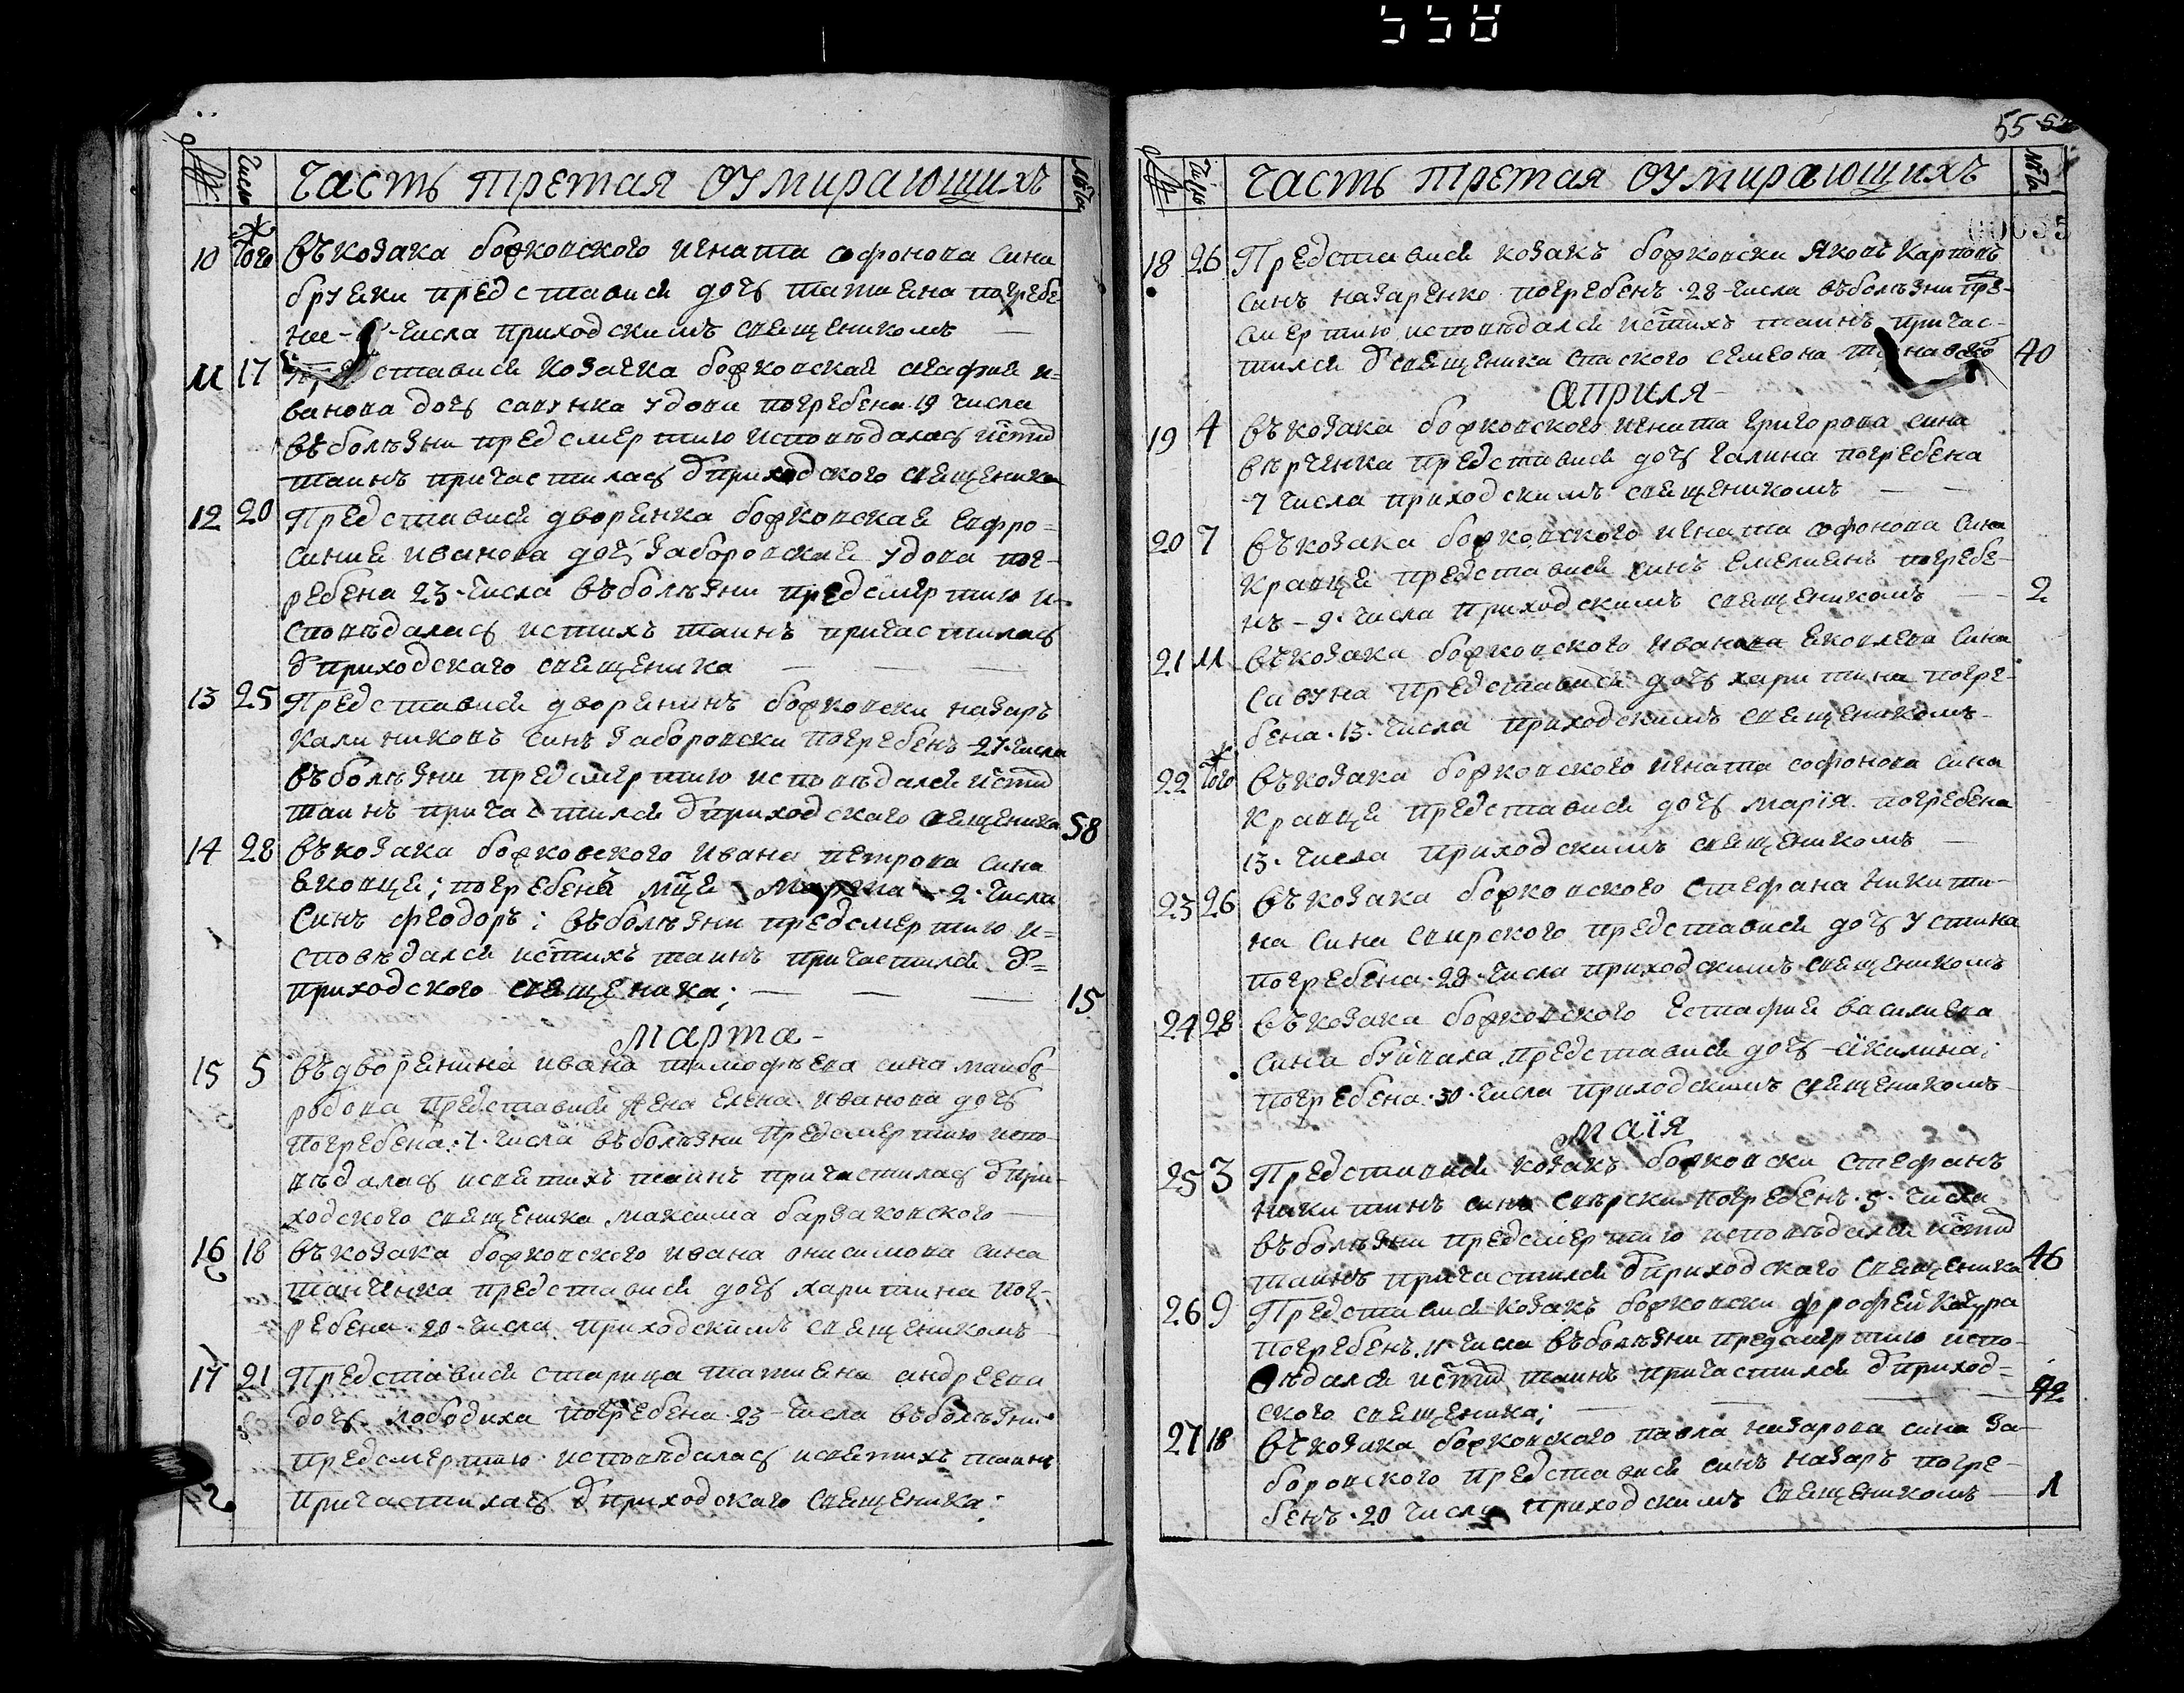 558
55
Число Часть третая оумирающихъ Лѣта
10 Того въ козака божковского игната софонова сина
представисѧ дочъ татиѧна погребе
числа приходскимъ свѧщеникомъ
11 17 представисѧ козачка божковскаѧ агафиѧ и-
ванова дочъ удова погребена 19 числа
въ болѣзни пред смертию исповѣдалась и стых
таинъ причастилась ѿ приходского свѧщеника
12 20 Представисѧ дворѧнка божковскаѧ евфро-
синиѧ иванова дочъ Забороvскаѧ удова пог-
ребена 23 числа въ болѣзни пред смертию и-
сповѣдалась и стихъ таинъ причастилась
ѿ приходскаго свѧщеника
13 25 Представисѧ дворѧнинъ божковски назаръ
калиниковъ синъ заборовски погребенъ 27 числа
въ болѣзни пред смертию исповѣдалсѧ и стых
таинъ причастилсѧ ѿ приходскаго свѧщеника 58
14 28 въ козака божковского ивана петрова сина
ѧковца; погребенъ мцѧ марта 2 числа
синъ феодоръ: въ болѣзни пред смертию и-
сповѣдалсѧ и стихъ таинъ причастилсѧ ѿ
приходского свѧщеника; 15
Марта
15 5 въ дворѧнина ивана тимофѣева сина маибо-
родова представисѧ жена елена иванова дочъ
погребена: 7 числа въ болѣзни пред смертию испо-
вѣдалась и свѧтихъ таинъ причастилась ѿ при-
ходского свѧщеника максима барзаковского
16 18 въ козака божковского ивана онисимова сина
танчѧнка представисѧ дочъ харитина пог-
ребена 20 числа приходскимъ свѧщеникомъ
17 21 Представисѧ старица татиѧна андреева
дочъ лободиха погребена 23 числа въ болѣзни
пред смертию исповѣдалась и свѧтихъ таинъ
причастилась ѿ приходскаго свѧщеника:
Число Часть третая оумирающихъ Лѣта
00055
18 26 Представисѧ козакъ божковски Яковъ Карповъ
синъ назаренко погребенъ 28 числа въ болѣзни пре-
смертию исповѣдалсѧ и стихъ таинъ причас-
тилсѧ ѿ свѧщеника спаского семиона 40
априля
19 4 въ козака божковского игната григорова сина
вѣрченка представисѧ дочъ галина погребена
7 числа приходскимъ свѧщеникомъ
20 7 въ козака божковского игната софонова сина
кравцѧ представисѧ синъ емелиѧнъ погребе-
нъ 9 числа приходскимъ свѧщеникомъ 2
21 11 въ козака божковского ивана ѧковлева сина
савуна представисѧ дочъ харитина погре-
бена 13 числа приходскимъ свѧщеникомъ
22 Того въ козака божковского игната софонова сина
кравцѧ представисѧ дочъ марїя погребена
13 числа приходскимъ свѧщеникомъ
23 26 въ козака божковского стефана никити-
на сина свирского представисѧ дочъ устина
погребена 28 числа приходскимъ свѧщеникомъ
24 28 въ козака божковского Естафиѧ василиева
сина представисѧ дочъ акилина;
погребена 30 числа приходскимъ свѧщеникомъ
маїя
25 3 Представисѧ козакъ божковски стефанъ
никитинъ синъ свѣрски погребенъ 5 числа
въ болѣзни пред смертию исповѣдалсѧ и стых
таинъ причастилсѧ ѿ приходскаго свѧщеника 46
26 9 Представисѧ козакъ божковски
погребенъ 11 числа въ болѣзни пред смертию испо-
вѣдалсѧ и стых таинъ причастилсѧ ѿ приход-
ского свѧщеника; 42
27 18 въ козака божковского павла назарова сина за-
боровского представисѧ синъ назаръ погре-
бенъ 20 числа приходскимъ свѧщеникомъ 1